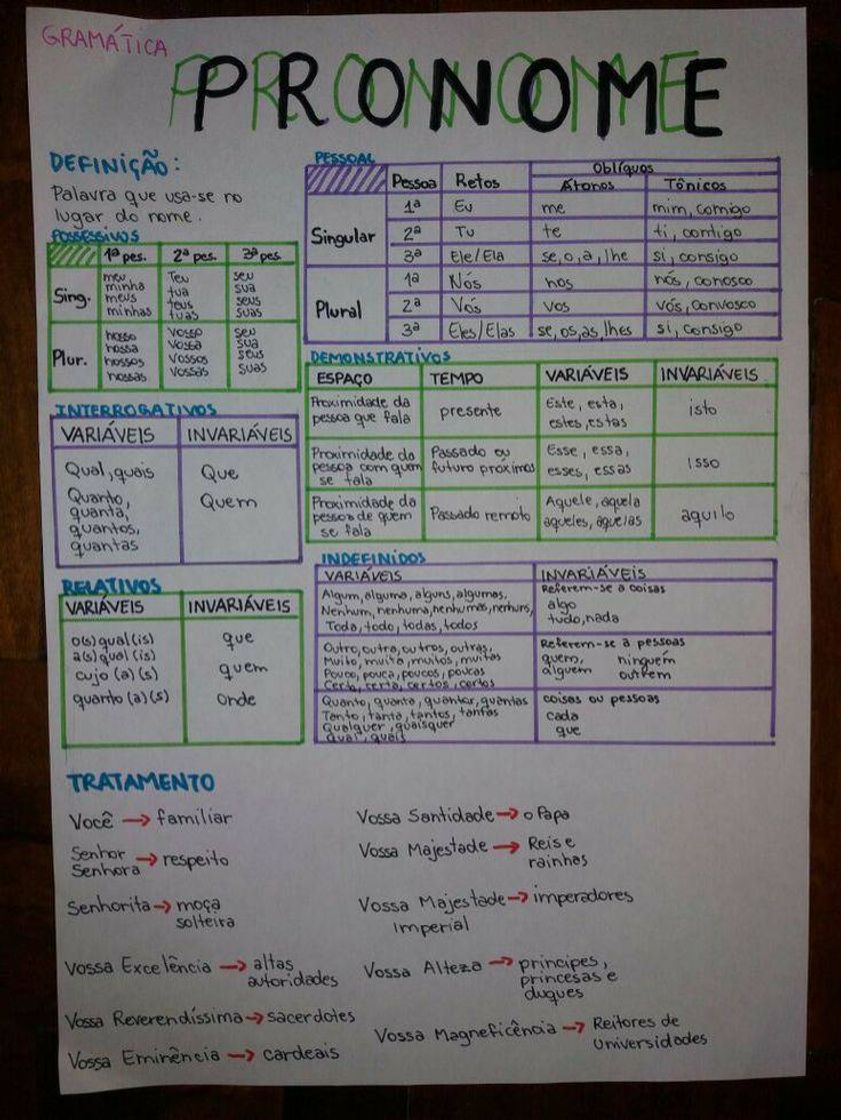 GRAMÁTICA
PRONOME
DEFINIÇÃO:
Palavra que usa-se no
lugar do nome.
POSSESSIVOS
1ª pes. 2ª pes. 3ª pes.
Sing.
meu Teu seu
minha tua sua
meus teus seus
minhas tuas suas
Plur.
nosso vosso seu
nossa vossa sua
nossos vossos seus
nossas vossas suas
PESSOAL
Oblíquos
Pessoa Retos Átonos Tônicos
Singular
1ª Eu me mim, comigo
2ª Tu te ti, contigo
3ª Ele/Ela se, o, a, lhe si, consigo
Plural
1ª Nós nos nós, conosco
2ª Vós vos vós, convosco
3ª Eles/Elas se, os, as, lhes si, consigo
DEMONSTRATIVOS
ESPAÇO TEMPO VARIÁVEIS INVARIÁVEIS
Proximidade da
pessoa que fala
presente
Este, esta,
estes, estas
isto
Proximidade da
pessoa com quem
se fala
Passado ou
futuro próximos
Esse, essa,
esses, essas
Isso
Proximidade da
pessoa de quem
se fala
Passado remoto
Aquele, aquela
aqueles, aquelas
aquilo
INTERROGATIVOS
VARIÁVEIS INVARIÁVEIS
Qual, quais Que
Quanto, Quem
quanta,
quantos,
quantas
RELATIVOS
VARIÁVEIS INVARIÁVEIS
o(s) qual(is) que
a(s) qual(is)
cujo (a)(s) quem
quanto (a)(s) onde
INDEFINIDOS
VARIÁVEIS INVARIÁVEIS
Algum, alguma, alguns, algumas,
Nenhum, nenhuma, nenhumas, nenhuns,
Toda, todo, todas, todos
Referem-se a coisas
algo
tudo, nada
Outro, outra, outros, outras,
Muito, muita, muitos, muitas
Pouco, pouca, poucos, poucas
Certo, certa, certos, certas
Referem-se à pessoas
quem, ninguém
alguem outrem
Quanto, quanta, quantos, quantas
Tanto, tanta, tantos, tantas
Qualquer, quaisquer
Qual, quais
coisas ou pessoas
cada
que
TRATAMENTO
Você → familiar
Senhor
Senhora → respeito
Senhorita → moça
solteira
Vossa Excelência → altas
autoridades
Vossa Reverendíssima → sacerdotes
Vossa Eminência → cardeais
Vossa Santidade → o Papa
Vossa Majestade → Reis e
rainhas
Vossa Majestade → imperadores
Imperial
Vossa Alteza → príncipes,
princesas e
duques
Vossa Magneficência → Reitores de
Universidades